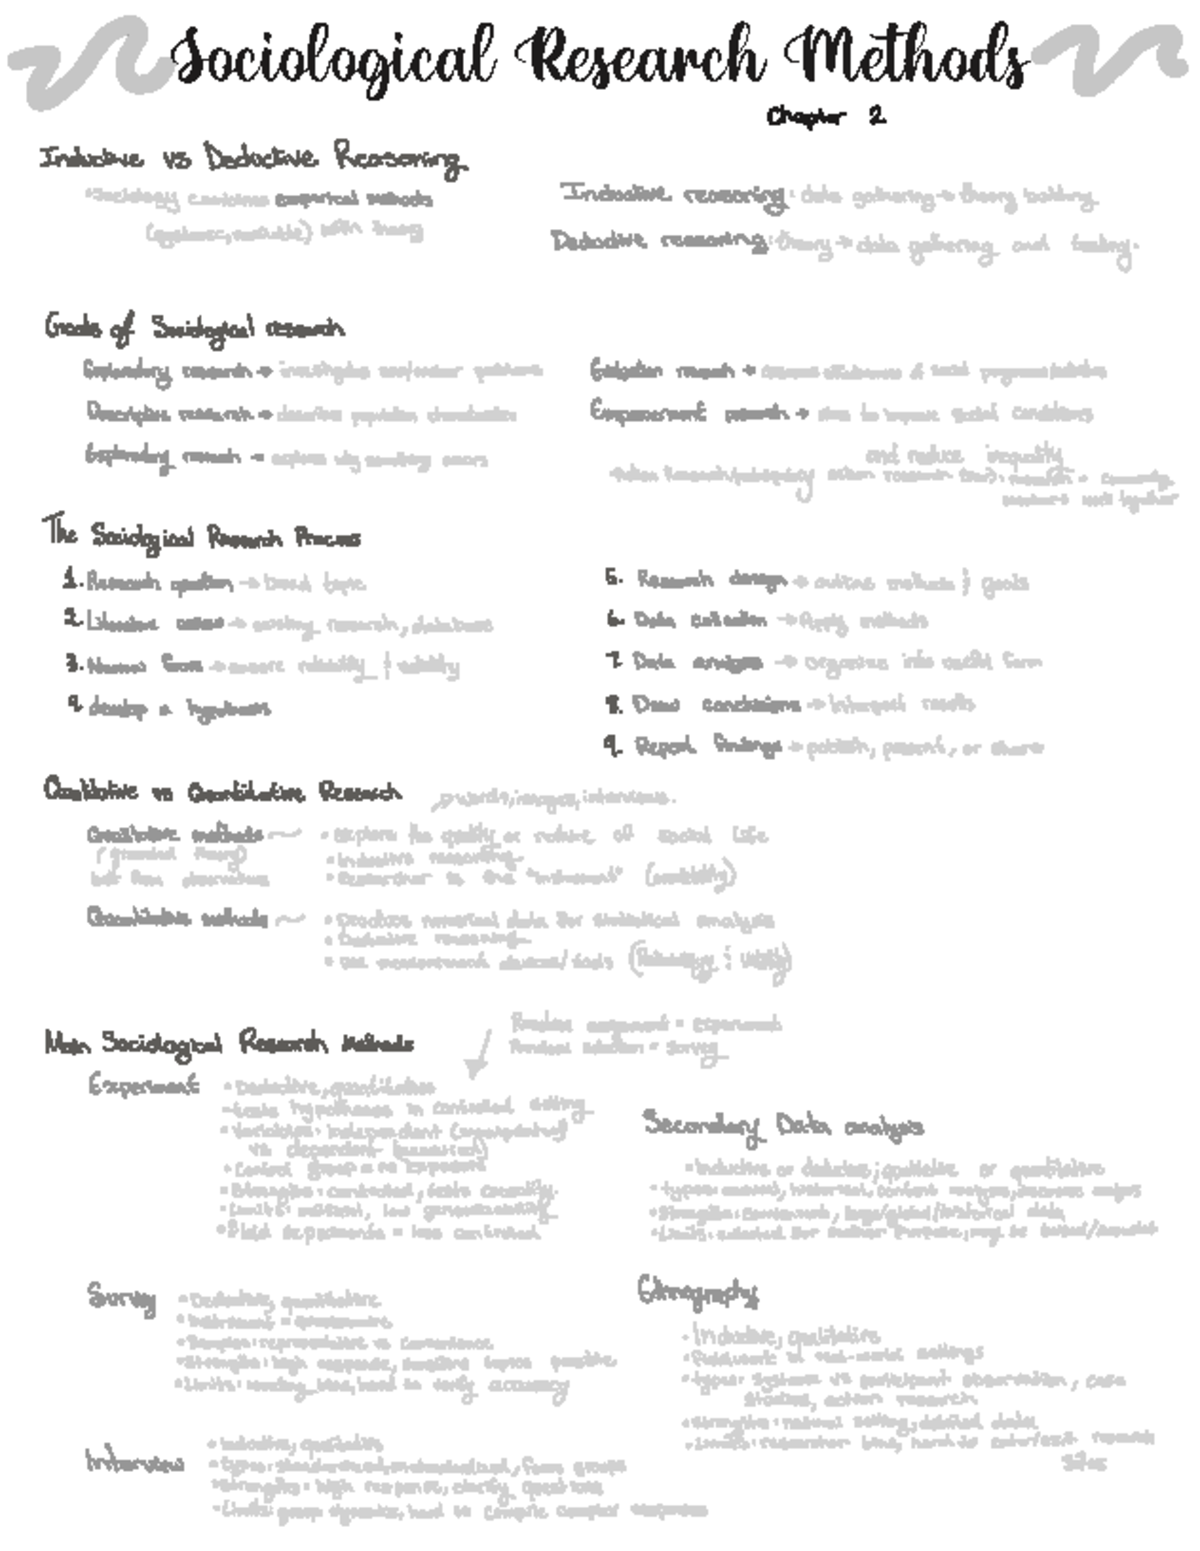 Sociological Research Methods
Chapter 2
Inductive vs Deductive Reasoning
•Sociology combines empirical methods
(systemic, verifiable) with theory
Inductive reasoning: data gathering → theory building
Deductive reasoning: theory → data gathering and testing.
Goals of Sociological research
Exploratory research → investigates
Descriptive research → describes population characteristics
Explanatory research → explains why something occurs
Evaluation research → assesses effectiveness of social programs/policies
Empowerment research → aims to improve social conditions
and reduce inequality
action research
members work together
The Sociological Research Process
1. Research question → broad topic
2. Literature → existing research, databases
3. Narrow focus → ensure reliability & validity
4. develop a hypothesis
5. Research design → outline methods & goals
6. Data collection → Apply methods
7. Data analysis → organize into useful form
8. Draw conclusions → interpret results
9. Report findings → publish, present, or share
Qualitative vs Quantitative Research
→ words, images, interviews.
Qualitative methods
(grounded theory)
from observations
• explore the quality or nature of social life
• Inductive reasoning
• Researcher is the "instrument" (credibility)
Quantitative methods
• Produce numerical data for statistical analysis
• Deductive reasoning
• use measurement devices/tools (Reliability & validity)
Main Sociological Research Methods
Random assignment = Experiment
Random selection = Survey
Experiment
• Deductive, quantitative
-tests hypotheses in controlled setting
• Variables: independent (manipulated)
vs dependent (measured)
• Control group = no exposure
• Strengths: controlled, tests causality.
• Limits: artificial, low generalizability
• Field experiments = less controlled
Secondary Data analysis
• Inductive or deductive; qualitative or quantitative
• types: historical, content analysis
• Strengths: convenient, large/global/historical data
• Limits: collected for another purpose; may be
Survey
• Deductive, quantitative
• Instrument = questionnaire
• Samples: representative vs convenience
• Strengths: high response, sensitive topics possible
• Limits: wording bias, hard to verify accuracy
Ethnography
• Inductive, qualitative
• fieldwork in real-world settings
• types: systematic vs participant observation, case
studies, action research
• Strengths: natural setting, detailed data
• Limits: researcher bias, hard to enter/exit research
sites
Interview
• Inductive, qualitative
• types: standardized, focus groups
• Strengths: high response, clarify questions
• Limits: group dynamics, hard to compile complex responses